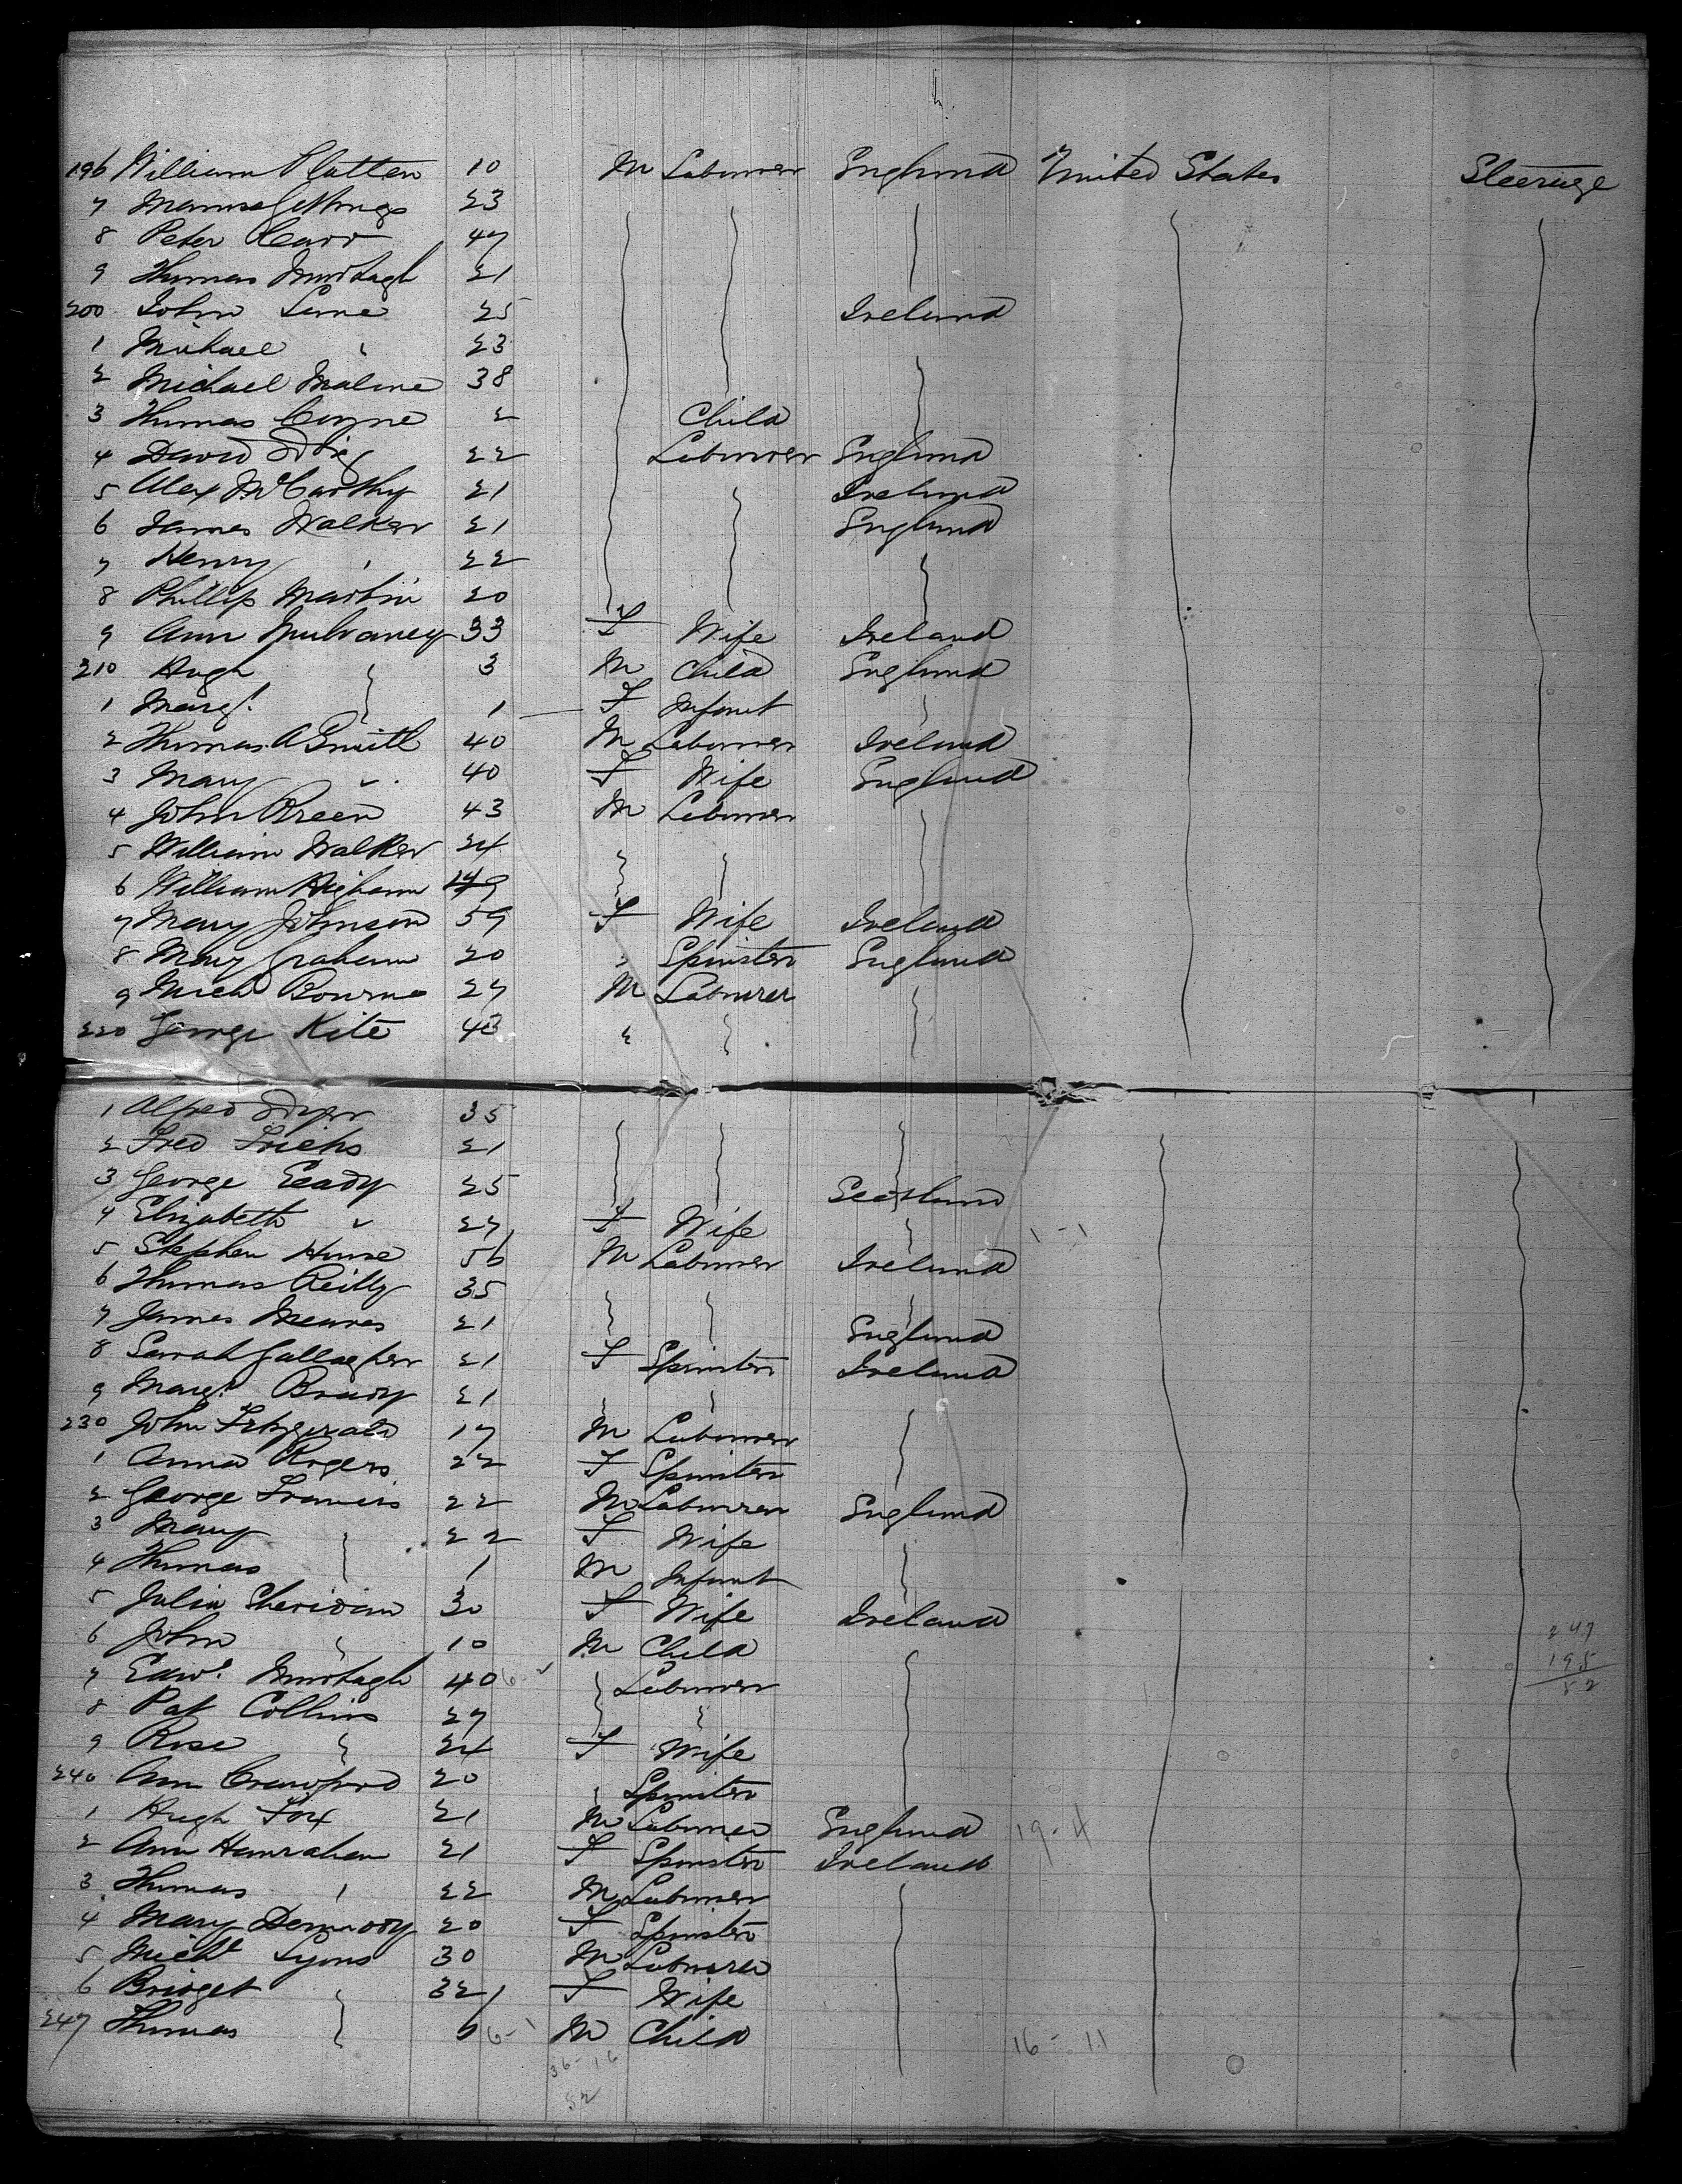 196 William Hatten 10 M Labourer England United States Steerage
7 23
8 Peter Carr 47
9 Thomas Murtagh 21
200 John Lane 25 Ireland
1 Michael " 23
2 Michael Malone 38
3 Thomas Coyne 2 Child
4 David 22 Labourer England
5 Alex McCarthy 21 Ireland
6 James Walker 21 England
7 Henry " 22
8 Phillip Martin 20
9 Ann Mulvaney 33 F Wife Ireland
210 Hugh 3 M Child England
1 Margt. 1 F Infant
2 Thomas A Smith 40 M Labourer Ireland
3 Mary " 40 F Wife England
4 John Breen 43 M Labourer
5 William Walker 24
6 William Higham 49
7 Mary Johnson 59 F Wife Ireland
8 Mary Graham 20 " Spinster England
9 Michl Bourne 27 M Labourer
220 George Kite 43 "
1 Alfred Dyer 35
2 Fred 21
3 George Eady 25 Scotland
4 Elizabeth " 27 F Wife
5 Stephen Hurse 56 M Labourer Ireland
6 Thomas Reilly 35
7 James Meares 21 England
8 Sarah Gallagher 21 F Spinster Ireland
9 Margt Brady 21
230 John Fitzgerald 17 M Labourer
1 Anna Rogers 22 F Spinster
2 George Francis 22 M Labourer England
3 Mary 22 F Wife
4 Thomas 1 M Infant
5 Julia Sheridan 30 F Wife Ireland
6 John " 10 M Child
247
7 Edwd Murtagh 40 Labourer
195
8 Pat Collins 29 "
52
9 Rose " 24 F Wife
240 Ann Crawford 20 " Spinster
1 Hugh Fox 21 M Labourer England 19-4
2 Ann Hanrahan 21 F Spinster Ireland
3 Thomas " 22 M Labourer
4 Mary Dermody 20 F Spinster
5 Michl Lyons 30 M Labourer
6 Bridget 32 F Wife
247 Thomas 6 6-1 M Child 16-11
36-16
52